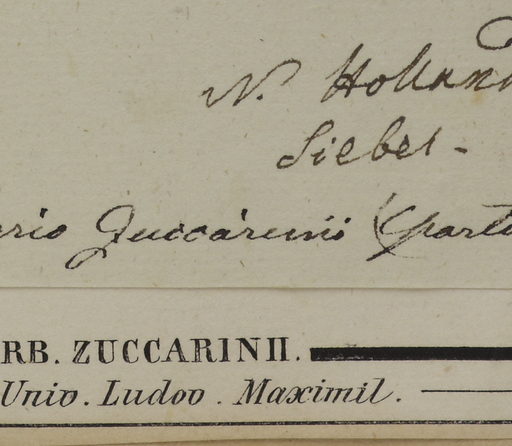 N. Holland
Sieber -
ario Zuccarinii (part
RB. ZUCCARINII.
Univ. Ludov. Maximil.